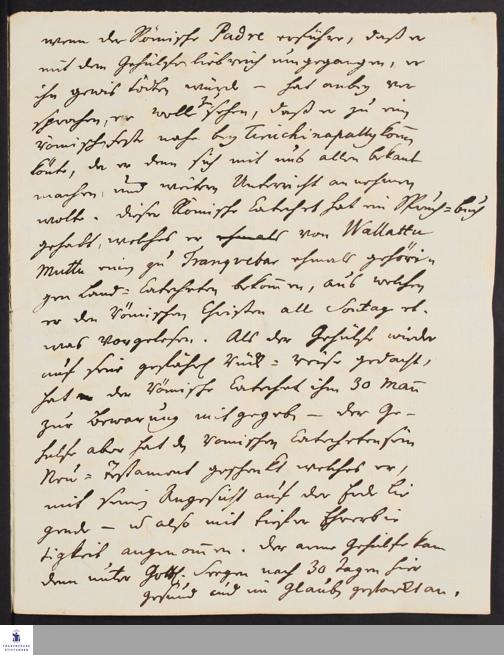 wenn der Römische Padre erführe, daß er
mit dem Gehülfen liebreich umgegangen, er
ihn gewis tödten würde – hat anbey ver
sprochen, er woll zu sehen, daß er zu ein
römisch feste nahe bey Tirutchinapally komm
könte, da er denn sich mit uns allen bekant
machen, und weitern Unterricht annehmen
wolte. dieser Römische Catechet hat ein Spruch=buch
gehabt, welches er ehmals von Wallattu
Muttu einem zu Tranqvebar ehmals gehöri
gen Land=Catecheten bekommen, aus welchen
er den Römischen Christen alle Sontag et
was vorgelesen. Als der Gehülfe wieder
auf seine gefährl Rück=reise gedacht,
hat der Römische Catechet ihm 30 Mann
zur Bewarung mitgegeben – der Ge
hülfe aber hat dem romischen Catecheten ein
Neu=Testament geschenkt welches er,
mit seinem Angesicht auf der Erde lie
gende – u also mit tiefster Ehrerbie
tigkeit angenommen. der arme Gehülfe kam
denn unter Gottl. Seegen nach 30 Tagen hier
gesund und im Glaube gestärckt an.
FRANCKESCHE
STIFTUNGEN